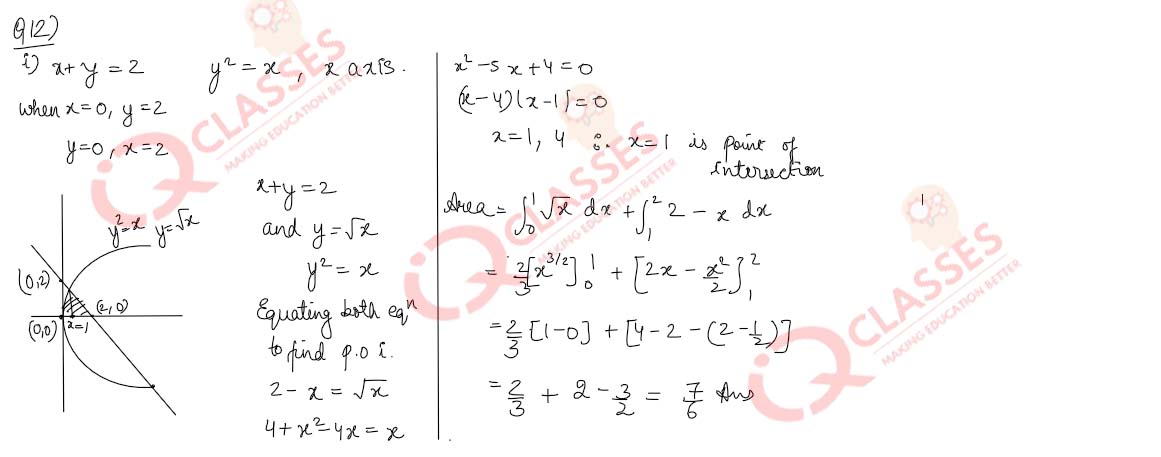 Q12)
i) x+y=2 y²=x, x axis.
when x=0, y=2
y=0, x=2
y²=x y=√x
(0,2)
(2,0)
(0,0) x=1
x+y=2
and y=√x
y²=x
Equating both eqⁿ
to find p.o i.
2-x=√x
4+x²-4x=x
x²-5x+4=0
(x-4)(x-1)=0
x=1, 4 ∴ x=1 is point of
intersection
Area=∫₀¹√x dx+∫₁²2-x dx
=2/3[x^3/2]₀¹+[2x-x²/2]₁²
=2/3[1-0]+[4-2-(2-1/2)]
=2/3+2-3/2=7/6 Ans
IQ CLASSES
MAKING EDUCATION BETTER
IQ CLASSES
MAKING EDUCATION BETTER
IQ CLASSES
MAKING EDUCATION BETTER